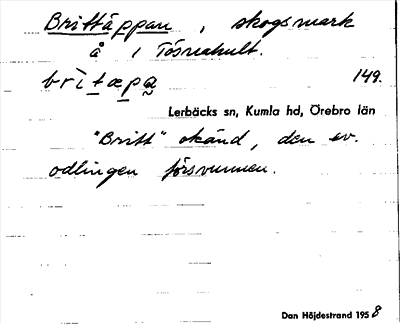 Brittäppan, skogsmark
å 1 Tösnahult.
brìtæpa 149.
Lerbäcks sn, Kumla hd, Örebro län
"Britt" okänd, den ev.
odlingen försvunnen.
Dan Höjdestrand 1958